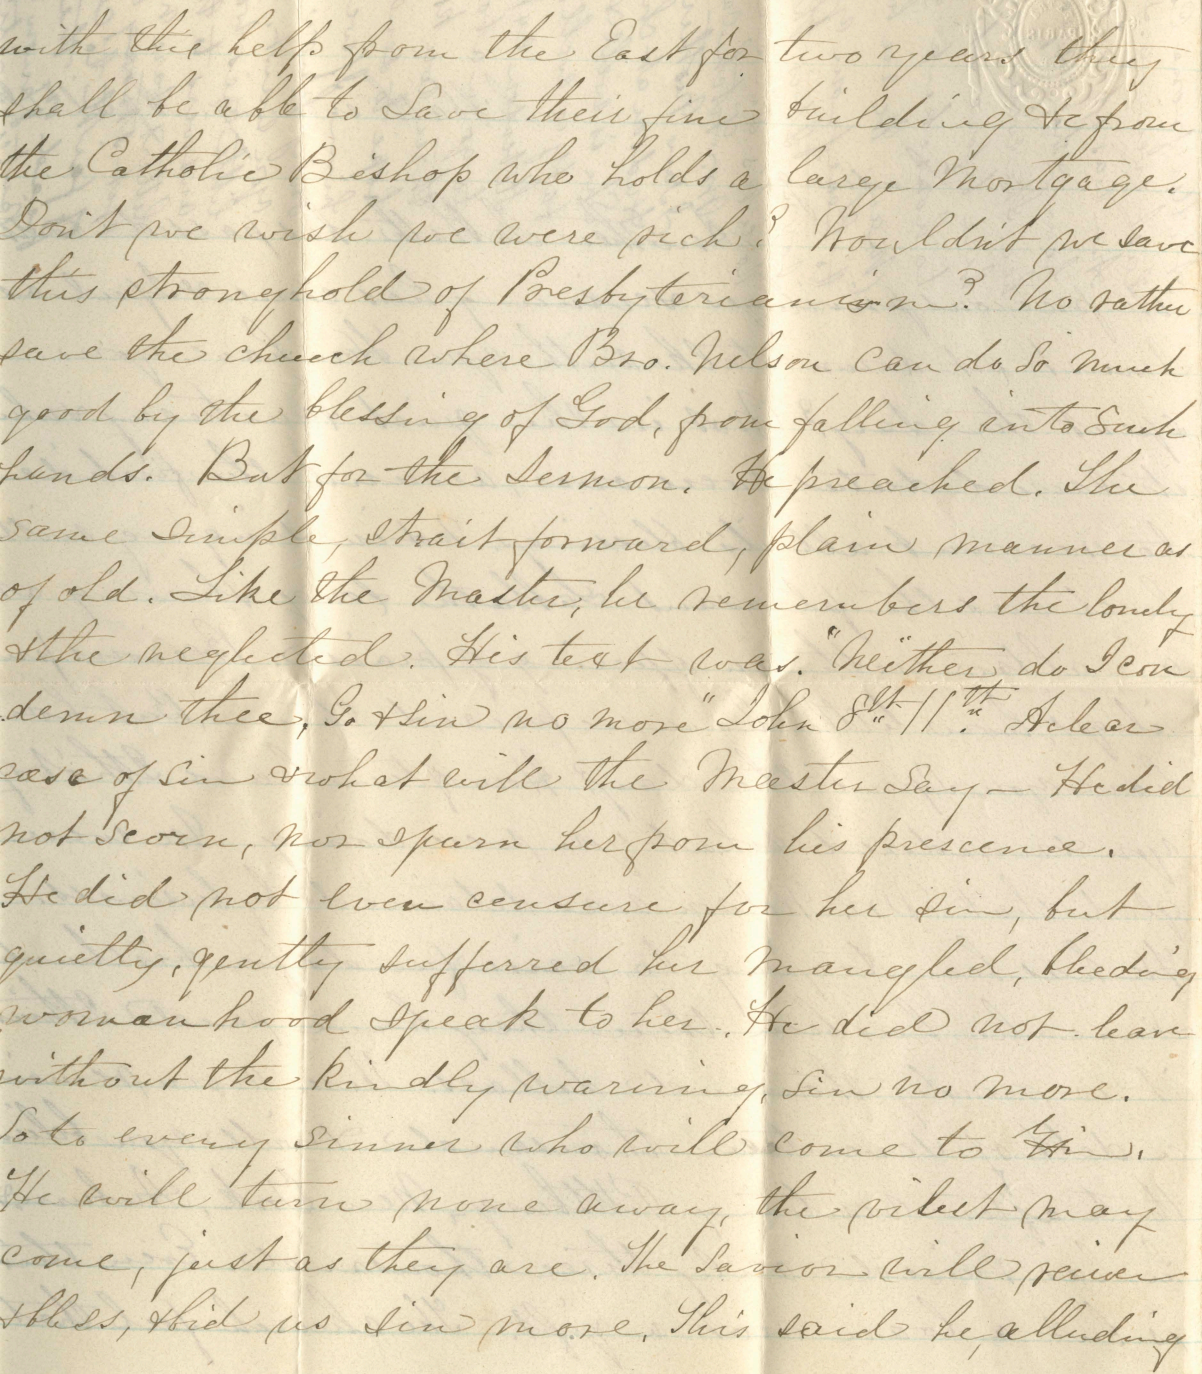 with the help from the East for two years they
shall be able to Save their fine building &c from
the Catholic Bishop who holds a large Mortgage.
Don't we wish we were rich? Wouldn't we save
this stronghold of Presbyterianism? No rather
save the church where Bro. Nelson can do So much
good by the blessing of God, from falling into Such
hands. But for the Sermon. He preached. The
same Simple, strait forward, plain manner as
of old. Like the Master, he remembers the lonely
& the neglected. His text was. "Neither do I con
demn thee, Go & Sin no more" John 8th 11th. A clear
case of Sin & what will the Master Say— He did
not Scorn, nor spurn her from his prescence.
He did not even censure for her sin, but
quietly, gently sufferred her mangled, bleeding
womanhood speak to her. He did not leave
without the kindly warning, Sin no more.
So to every Sinner who will come to Him.
He will turn none away, the vilest may
come, just as they are. The Savior will receive
& bless, & bid us sin more. This said he, alluding